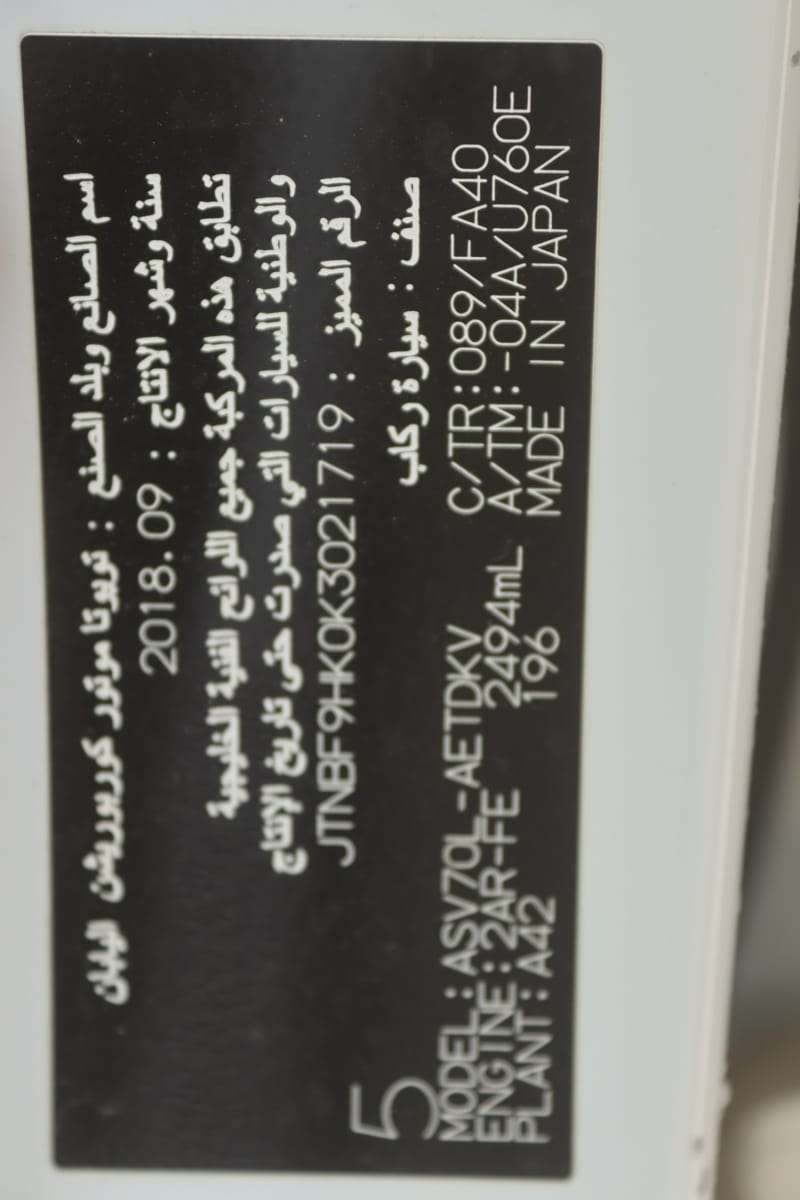 اسم الصانع وبلد الصنع : تويوتا موتور كوربوريشن اليابان
سنة وشهر الانتاج : 2018.09
تطابق هذه المركبة جميع اللوائح الفنية الخليجية
والوطنية للسيارات التي صدرت حتى تاريخ الإنتاج
الرقم المميز : JTNBF9HK0K3021719
صنف : سيارة ركاب
5
MODEL : ASV70L-AETDKV C/TR : 089/FA40
ENGINE : 2AR-FE 2494mL A/TM : -04A/U760E
PLANT : A42 196 MADE IN JAPAN